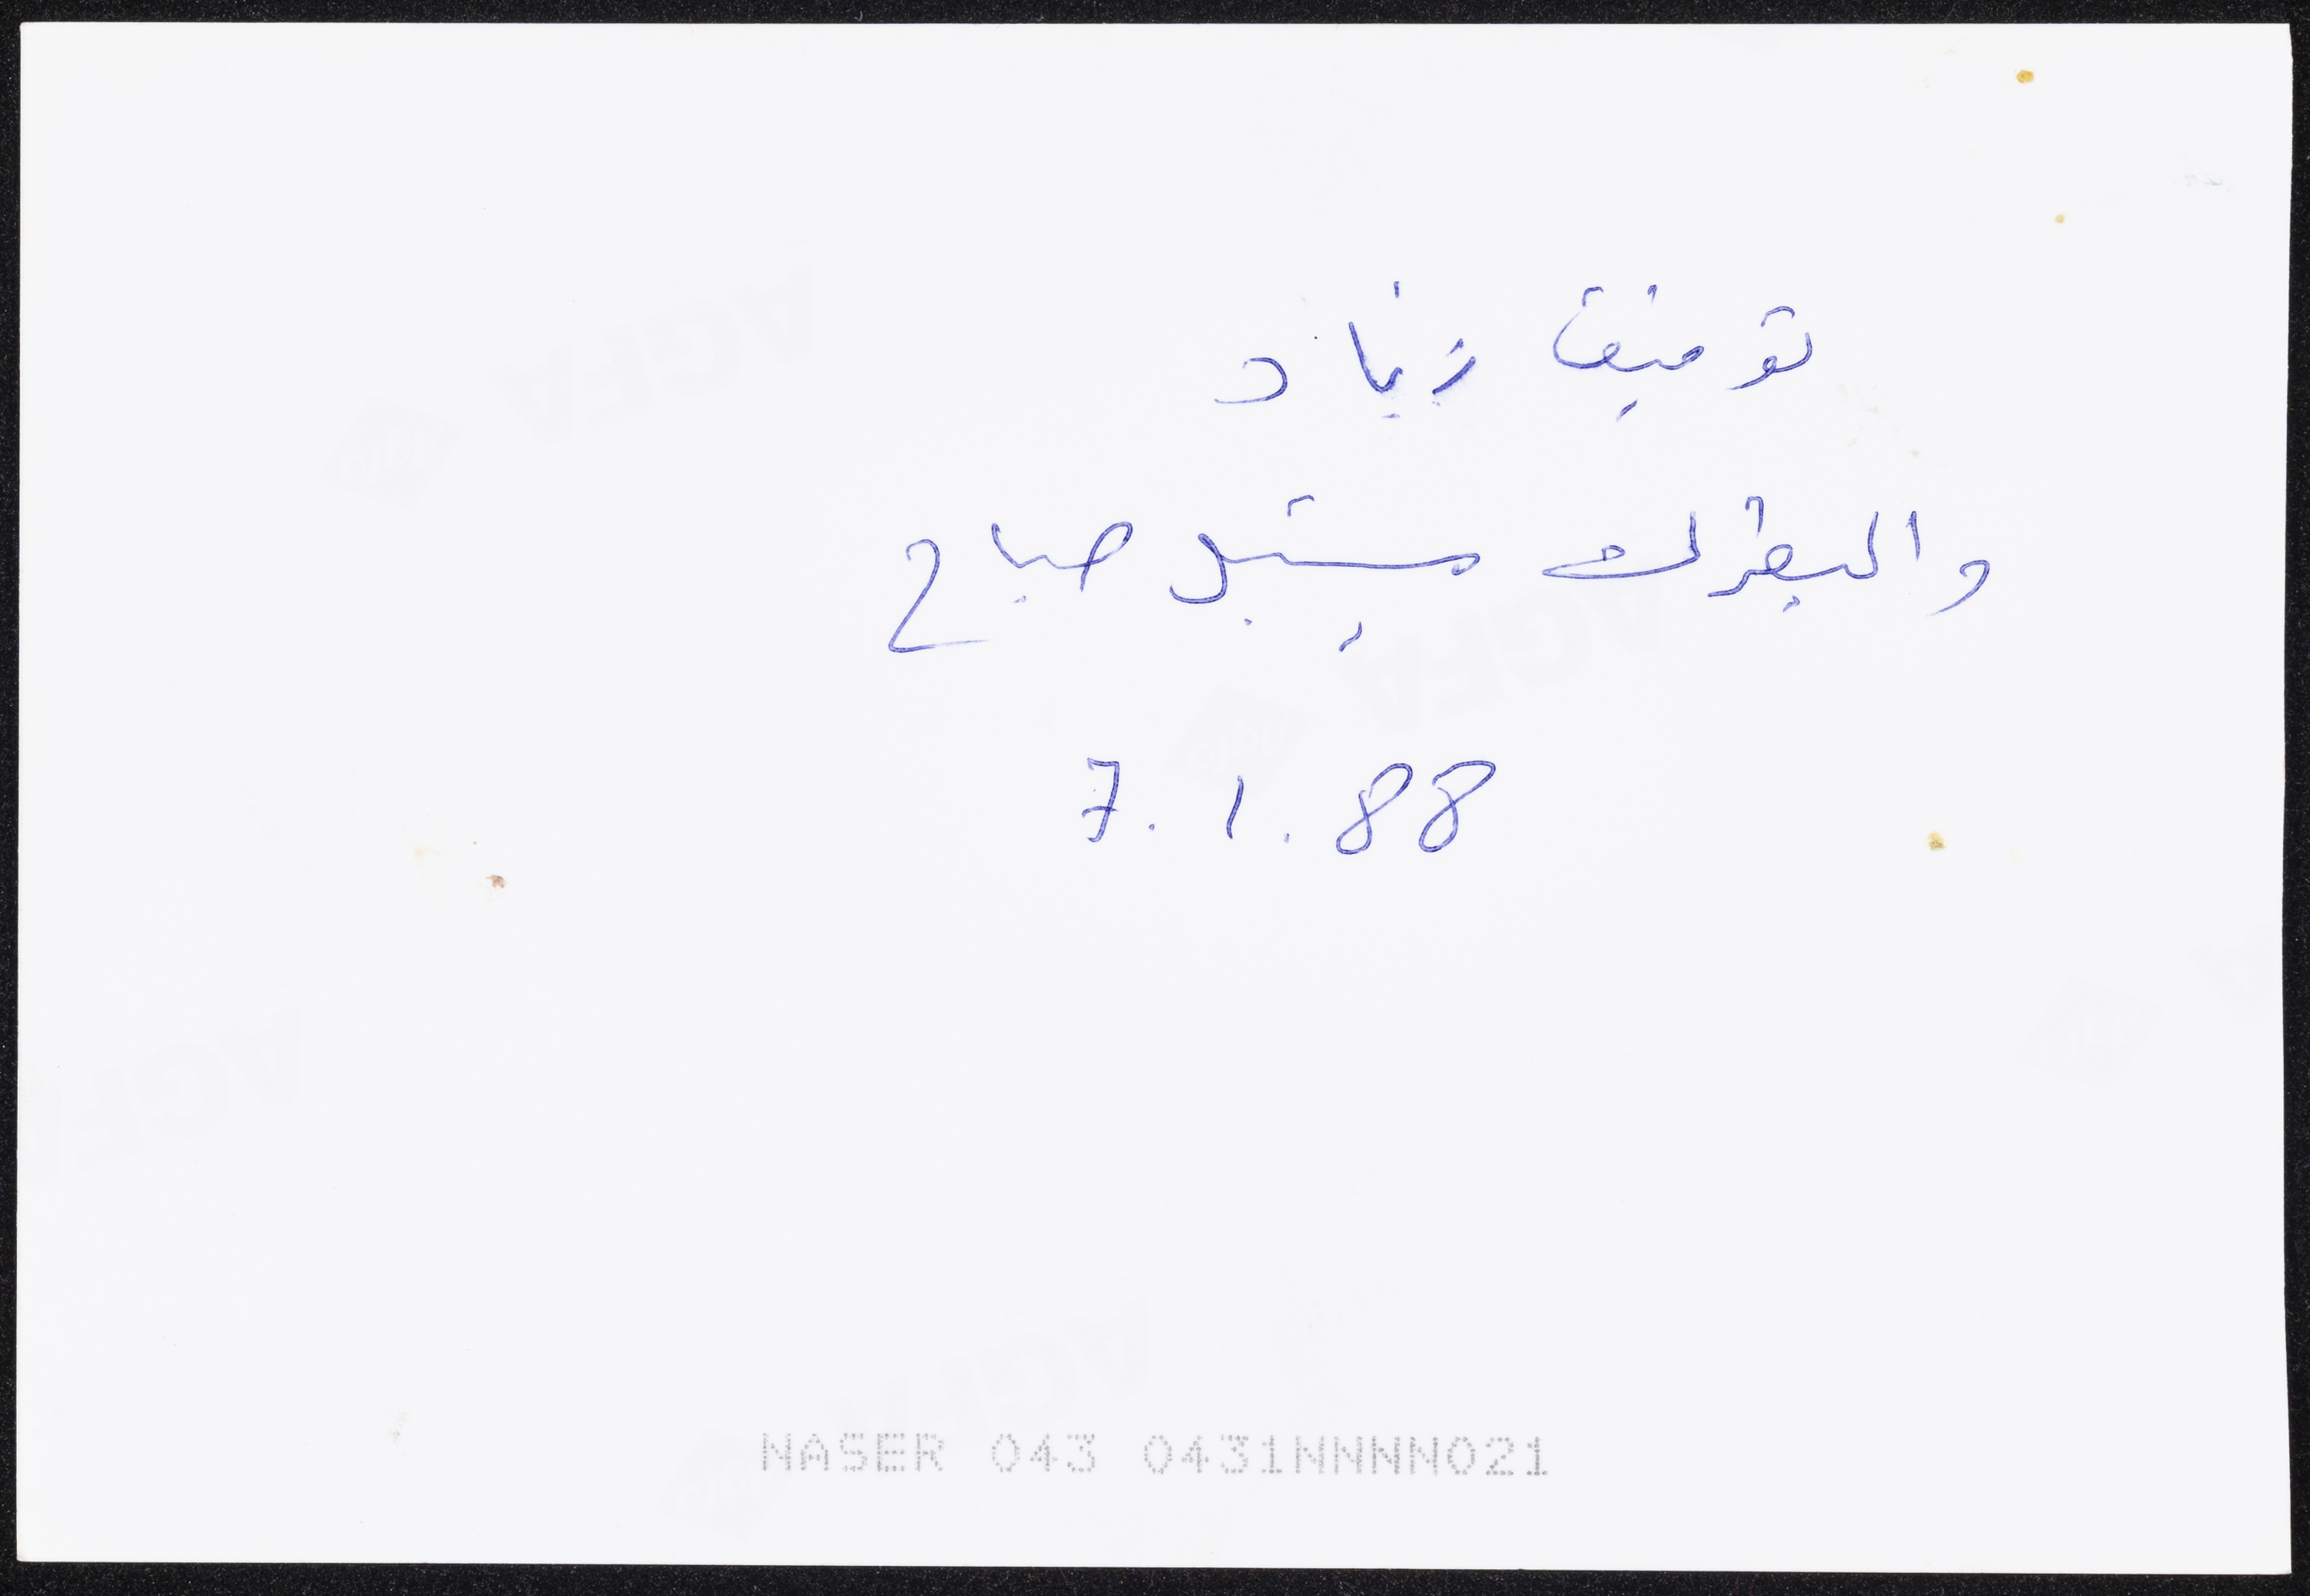 توفيق زياد
والبطرك ميشيل صباح
7.1.88
NASER 043 0431NNNNN021